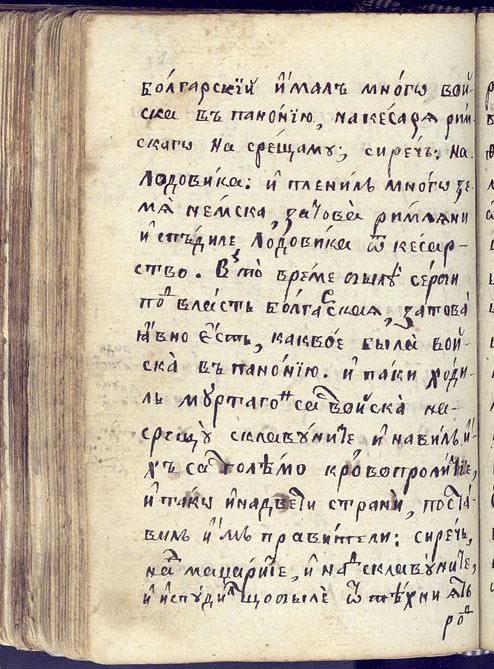 болгарскїй и҆малъ мно́гѡ вой-
ска въ пано́нїю, на ке́сара рим-
скагѡ на сре́щаму; сирѣчь: на
Лодовика: и҆ пленилъ мно́гѡ зе-
мѧ̀ не́мска, за това̀ римлѧни
и҆спѣдиле Лодовика ѿ кеса́р-
ство. В то̀ време билѣ серби
под власть болгарскаѧ, затова̀
ꙗ҆вно є҆́сть, какво́е была̀ вой-
ска̀ въ пано́нїю. и҆ па́ки ходи-
лъ муртагон са войска̀ на-
срещꙋ склавꙋните и҆ навилъ и҆-
хъ са голѣмо кро́вопроли́тїе,
и҆ такѡ и҆ на две ти страни, поста́-
вилъ и҆̀мъ прави́тели: сирѣчь,
над маџарите, и҆ над склавꙋните,
и҆ испꙋдил що биле ѿ тѣхни ѧть
род